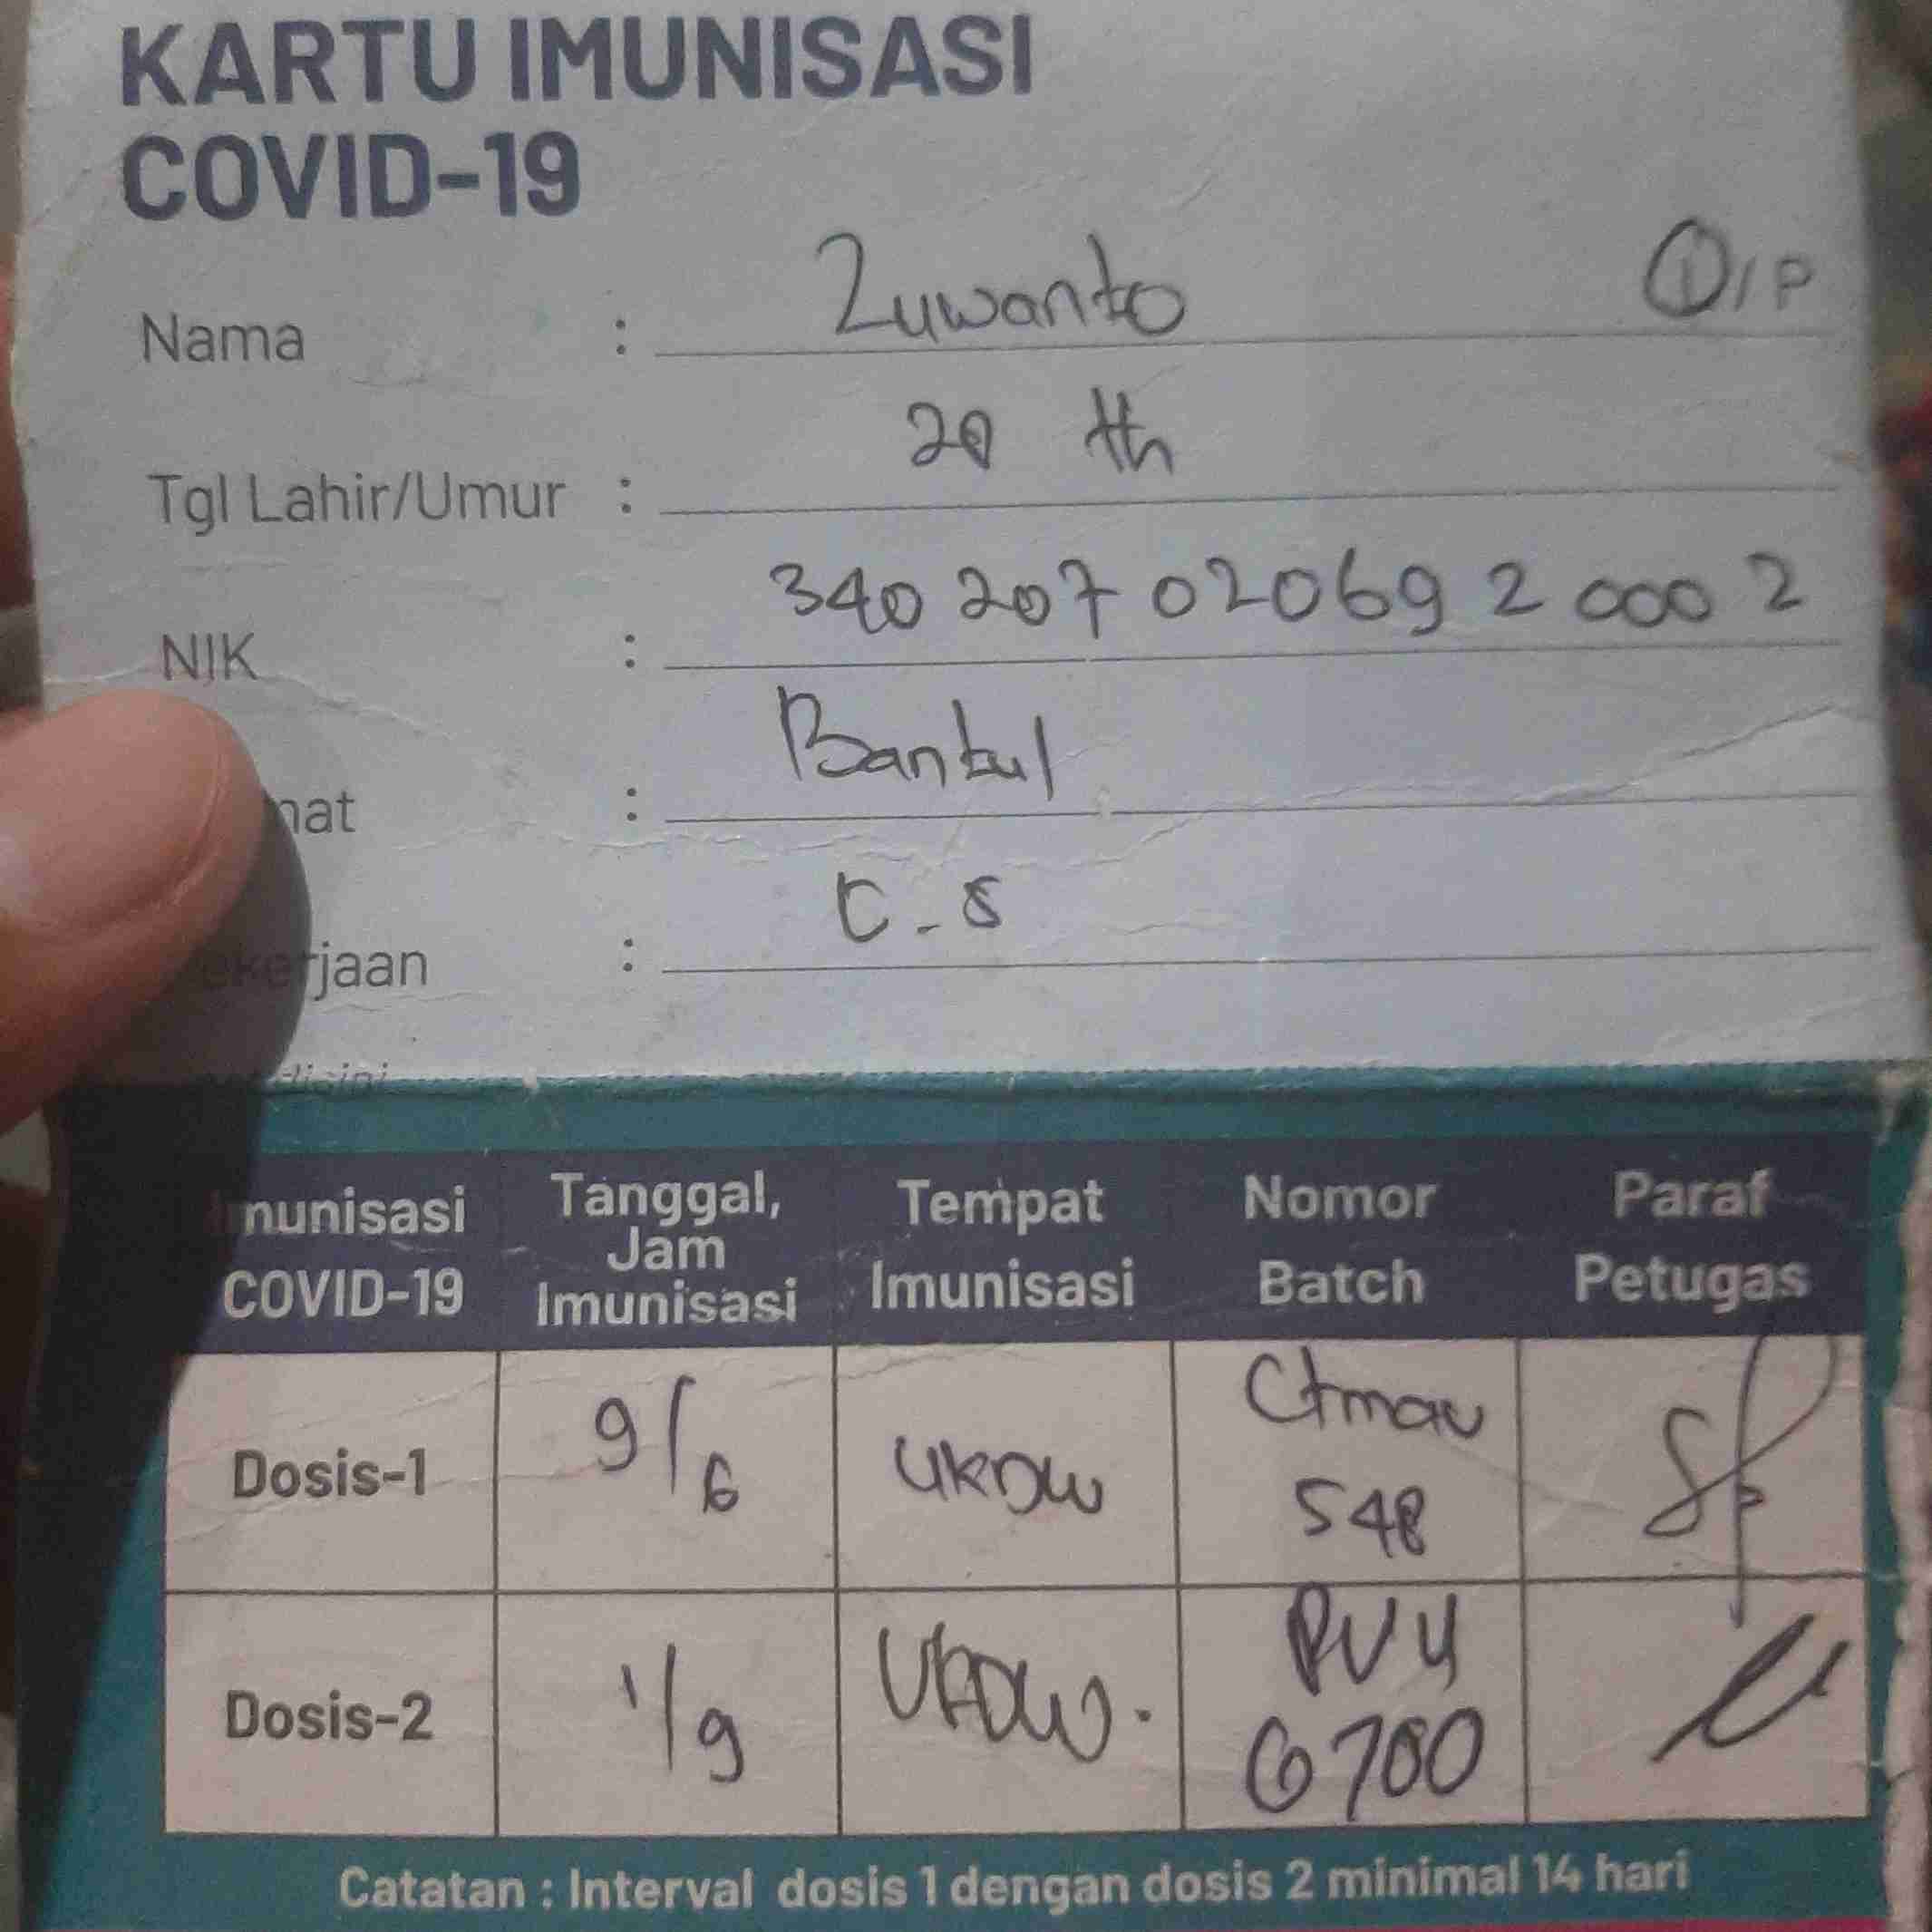 KARTU IMUNISASI
COVID-19
Nama : Zuwanto L/P
Tgl Lahir/Umur : 20 th
NIK : 3402070206920002
mat : Bantul
ekerjaan : C.S
disini
munisasi COVID-19 Tanggal, Jam Imunisasi Tempat Imunisasi Nomor Batch Paraf Petugas
Dosis-1 9/6 UKDW Ctmav 548
Dosis-2 1/9 UKDW. PVU 6700
Catatan : Interval dosis 1 dengan dosis 2 minimal 14 hari